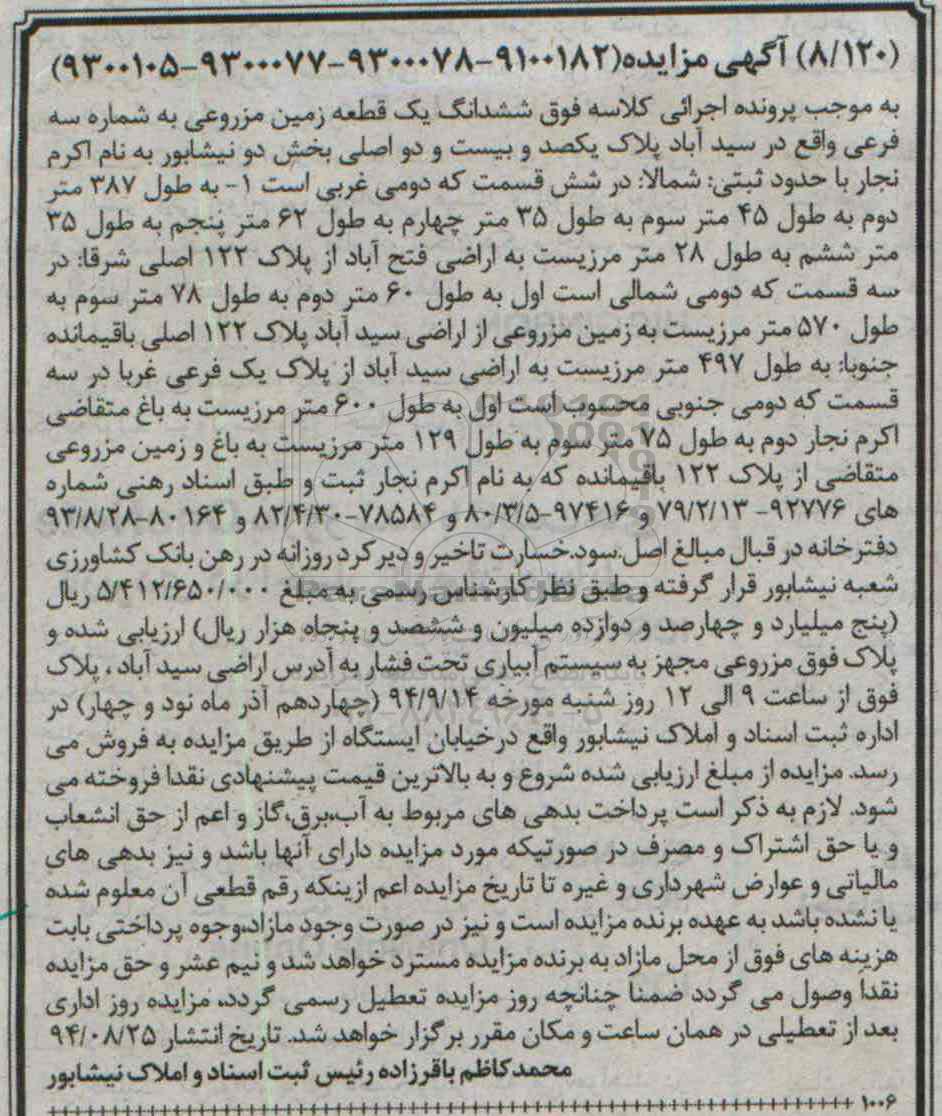 (۸/۱۲۰) آگهی مزایده(۹۱۰۰۱۸۲-۹۳۰۰۰۷۸-۹۳۰۰۰۷۷-۹۳۰۰۱۰۵)
به موجب پرونده اجرائی کلاسه فوق ششدانگ یک قطعه زمین مزروعی به شماره سه
فرعی واقع در سید آباد پلاک یکصد و بیست و دو اصلی بخش دو نیشابور به نام اکرم
نجار با حدود ثبتی: شمالا: در شش قسمت که دومی غربی است ۱- به طول ۳۸۷ متر
دوم به طول ۴۵ متر سوم به طول ۳۵ متر چهارم به طول ۶۲ متر پنجم به طول ۳۵
متر ششم به طول ۲۸ متر مرزیست به اراضی فتح آباد از پلاک ۱۲۲ اصلی شرقا: در
سه قسمت که دومی شمالی است اول به طول ۶۰ متر دوم به طول ۷۸ متر سوم به
طول ۵۷۰ متر مرزیست به زمین مزروعی از اراضی سید آباد پلاک ۱۲۲ اصلی باقیمانده
جنوبا: به طول ۴۹۷ متر مرزیست به اراضی سید آباد از پلاک یک فرعی غربا در سه
قسمت که دومی جنوبی محسوب است اول به طول ۶۰۰ متر مرزیست به باغ متقاضی
اکرم نجار دوم به طول ۷۵ متر سوم به طول ۱۲۹ متر مرزیست به باغ و زمین مزروعی
متقاضی از پلاک ۱۲۲ باقیمانده که به نام اکرم نجار ثبت و طبق اسناد رهنی شماره
های ۹۲۷۷۶- ۷۹/۲/۱۳ و ۹۷۴۱۶-۸۰/۳/۵ و ۷۸۵۸۴-۸۲/۴/۳۰ و ۸۰۱۶۴-۹۳/۸/۲۸
دفترخانه در قبال مبالغ اصل.سود.خسارت تاخیر و دیر کرد روزانه در رهن بانک کشاورزی
شعبه نیشابور قرار گرفته و طبق نظر کارشناس رسمی به مبلغ ۵/۴۱۲/۶۵۰/۰۰۰ ریال
(پنج میلیارد و چهارصد و دوازده میلیون و ششصد و پنجاه هزار ریال) ارزیابی شده و
پلاک فوق مزروعی مجهز به سیستم آبیاری تحت فشار به آدرس اراضی سید آباد ، پلاک
فوق از ساعت ۹ الی ۱۲ روز شنبه مورخه ۹۴/۹/۱۴ (چهاردهم آذر ماه نود و چهار) در
اداره ثبت اسناد و املاک نیشابور واقع درخیابان ایستگاه از طریق مزایده به فروش می
رسد. مزایده از مبلغ ارزیابی شده شروع و به بالاترین قیمت پیشنهادی نقدا فروخته می
شود. لازم به ذکر است پرداخت بدهی های مربوط به آب،برق،گاز و اعم از حق انشعاب
و یا حق اشتراک و مصرف در صورتیکه مورد مزایده دارای آنها باشد و نیز بدهی های
مالیاتی و عوارض شهرداری و غیره تا تاریخ مزایده اعم ازینکه رقم قطعی آن معلوم شده
یا نشده باشد به عهده برنده مزایده است و نیز در صورت وجود مازاد،وجوه پرداختی بابت
هزینه های فوق از محل مازاد به برنده مزایده مسترد خواهد شد و نیم عشر و حق مزایده
نقدا وصول می گردد ضمنا چنانچه روز مزایده تعطیل رسمی گردد، مزایده روز اداری
بعد از تعطیلی در همان ساعت و مکان مقرر برگزار خواهد شد. تاریخ انتشار ۹۴/۰۸/۲۵
محمدکاظم باقرزاده رئیس ثبت اسناد و املاک نیشابور
۱۰۰۶